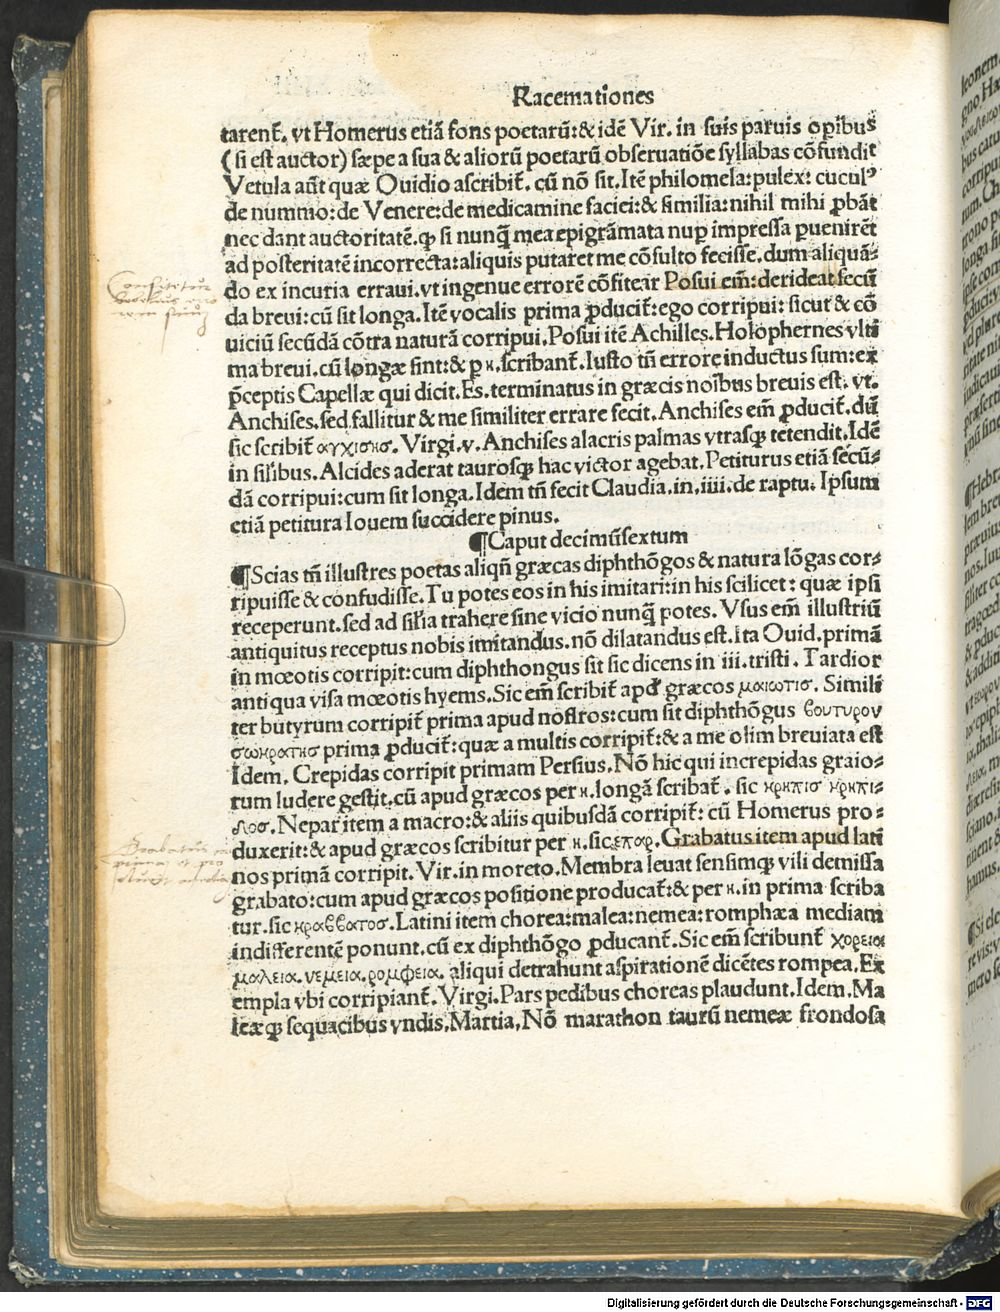 Racemationes
tarent̃. vt Homerus etiã fons poetarũ:& idẽ Vir. in suis paruis opibus
( si est auctor) sæpe a sua & aliorũ poetarũ obseruatiõe syllabas cõfundit
Vetula aũt quæ Ouidio ascribit̃. cũ nõ sit. Itẽ philomela: pulex: cuculꝰ
de nummo: de Venere: de medicamine faciei: & similia: nihil mihi ꝓbãt
nec dant auctoritatẽ. ꝙ si nunq̃ mea epigrãmata nuꝑ impressa puenirẽt
ad posteritatẽ incorrecta: aliquis putaret me cõsulto fecisse. dum aliquã-
do ex incuria erraui. vt ingenue errorẽ cõfitear Posui em̃: derideat secũ
da breui: cũ sit longa. Itẽ vocalis prima ꝓducit̃: ego corripui: sicut & cõ
uiciũ secũdã cõtra naturã corripui. Posui itẽ Achilles. Holophernes vlti
ma breui. cũ longæ sint: & ꝑ η. scribant̃. Iusto tñ errore inductus sum: ex
p̃ceptis Capellæ qui dicit. Es. terminatus in græcis noĩbus breuis est. vt.
Anchises. sed fallitur & me similiter errare fecit. Anchises em̃ ꝓducit̃. dũ
sic scribit̃ αγχισης. Virgi. v. Anchises alacris palmas vtrasꝙ tetendit. Idẽ
in silibus. Alcides aderat taurosꝙ hac victor agebat. Petiturus etiã secũ-
dã corripui: cum sit longa. Idem tñ fecit Claudia. in. iiii. de raptu. Ipsum
etiã petitura Iouem succidere pinus.
¶Caput decimũsextum
¶Scias tñ illustres poetas aliqñ græcas diphthõgos & natura lõgas cor-
ripuisse & confudisse. Tu potes eos in his imitari: in his scilicet: quæ ipsi
receperunt. sed ad sil̃ia trahere sine vicio nunq̃ potes. Vsus em̃ illustriũ
antiquitus receptus nobis imitandus. nõ dilatandus est. Ita Ouid. primã
in mœotis corripit: cum diphthongus sit sic dicens in iii. tristi. Tardior
antiqua visa mœotis hyems. Sic em̃ scribit̃ apđ græcos μαιωτις. Simili
ter butyrum corripit̃ prima apud nostros: cum sit diphthõgus βουτυρον
σωκρατης prima ꝓducit̃: quæ a multis corripit̃: & a me olim breuiata est
Idem. Crepidas corripit primam Persius. Nõ hic qui increpidas graio-
rum ludere gestit. cũ apud græcos per η. longã scribat̃. sic κρηπισ κρηπι-
δος. Nepar item a macro: & aliis quibusdã corripit̃: cũ Homerus pro-
duxerit: & apud græcos scribitur per η. sic. επαρ. Grabatus item apud lati
nos primã corripit. Vir. in moreto. Membra leuat sensimꝙ vili demissa
grabato: cum apud græcos positione producat̃: & per η. in prima scriba
tur. sic κραββατος. Latini item chorea: malea: nemea: romphæa mediam
indifferentẽ ponunt. cũ ex diphthõgo ꝓducant̃. Sic em̃ scribunt̃ χορεια
μαλεια. νεμεια. ρομφεια. aliqui detrahunt aspirationẽ dicẽtes rompea. Ex
empla vbi corripiant̃. Virgi. Pars pedibus choreas plaudunt. Idem. Ma
leæꝙ sequacibus vndis. Martia. Nõ marathon taurũ nemeæ frondosa
Digitalisierung gefördert durch die Deutsche Forschungsgemeinschaft - DFG